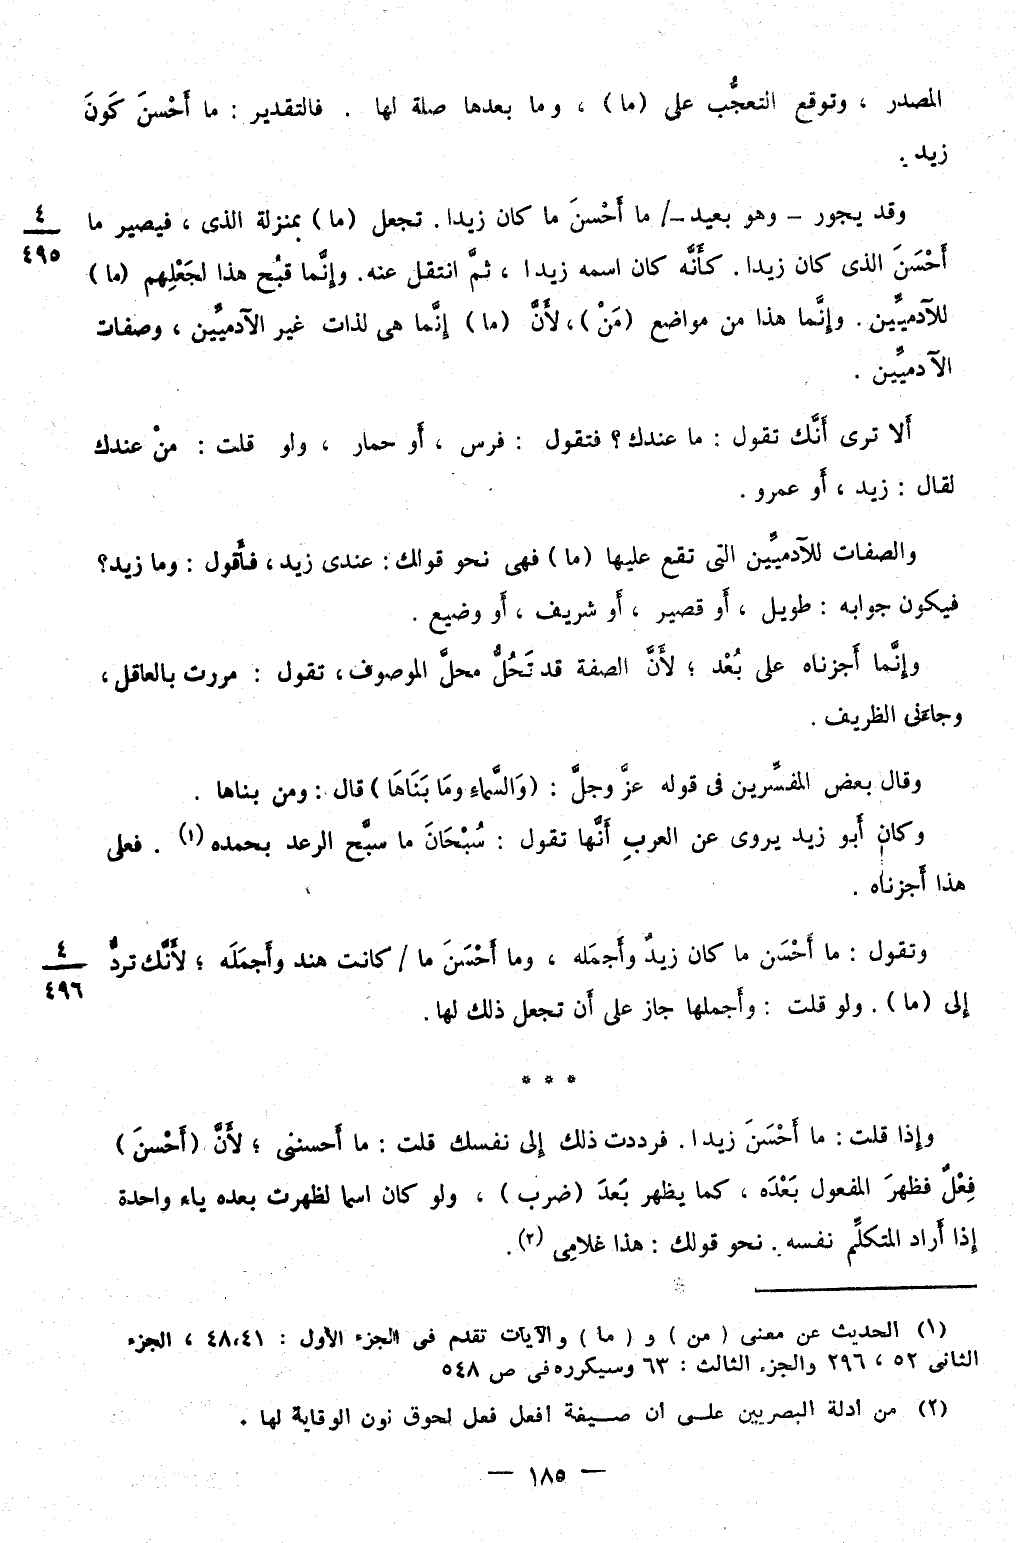 المصدر ، وتوقع التعجُّب على (ما) ، وما بعدها صلة لها . فالتقدير : ما أَحْسنَ كَونَ
زيد .
وقد يجور – وهو بعيد –/ ما أَحْسنَ ما كان زيدا. تجعل (ما) بمنزلة الذى ، فيصير ما
٤
٤٩٥
أَحْسَنَ الذى كان زيدا. كأَنَّه كان اسمه زيدا ، ثمَّ انتقل عنه. وإِنَّما قبُح هذا لجَعْلِهم (ما)
للآدميِّين . وإِنَّما هذا من مواضع (مَنْ)، لأَنَّ (ما) إِنَّما هى لذات غير الآدميِّين ، وصفات
الآدميِّين .
أَلا ترى أَنَّك تقول : ما عندك ؟ فتقول : فرس ، أَو حمار ، ولو قلت : منْ عندك
لقال : زيد ، أَو عمرو .
والصفات للآدميِّين التى تقع عليها (ما) فهى نحو قوالك : عندى زيد ، فأَقول : وما زيد؟
فيكون جوابه : طويل ، أَو قصير ، أَو شريف ، أَو وضيع .
وإِنَّما أَجزناه على بُعْد ؛ لأَنَّ الصفة قد تَحُلُّ محلَّ الموصوف، تقول : مررت بالعاقل ،
وجاءنى الظريف .
وقال بعض المفسِّرين فى قوله عزَّ وجلَّ : (وَالسَّماءِ ومَا بَنَاهَا) قال : ومن بناها .
وكان أَبو زيد يروى عن العربِ أَنَّها تقول : سُبْحَانَ ما سبَّح الرعد بحمده (١) . فعلى
هذا أَجزناه .
وتقول : ما أَحْسَن ما كان زيدٌ وأَجمَله ، وما أَحْسَنَ ما / كانت هند وأَجمَلَه ؛ لأَنَّك تردُّ
٤
٤٩٦
إلى (ما) . ولو قلت : وأَجملها جاز على أَن تجعل ذلك لها .
* * *
وإذا قلت : ما أَحْسَنَ زيدا . فرددت ذلك إلى نفسك قلت : ما أَحسننى ؛ لأَنَّ (أَحْسنَ)
فِعْلٌ فظهرَ المفعول بَعْدَه ، كما يظهر بَعدَ (ضرب) ، ولو كان اسما لظهرت بعده ياء واحدة
إذا أَراد المتكلِّم نفسه . نحو قولك : هذا غلامى (٢) .
(١) الحديث عن معنى (من) و (ما) والآيات تقدم فى الجزء الأول : ٤٨،٤١ ، الجزء
الثانى ٥٢ ، ٢٩٦ والجزء الثالث : ٦٣ وسيكرره فى ص ٥٤٨
(٢) من أدلة البصريين على أن صيغة أفعل فعل لحوق نون الوقاية لها .
— ١٨٥ —